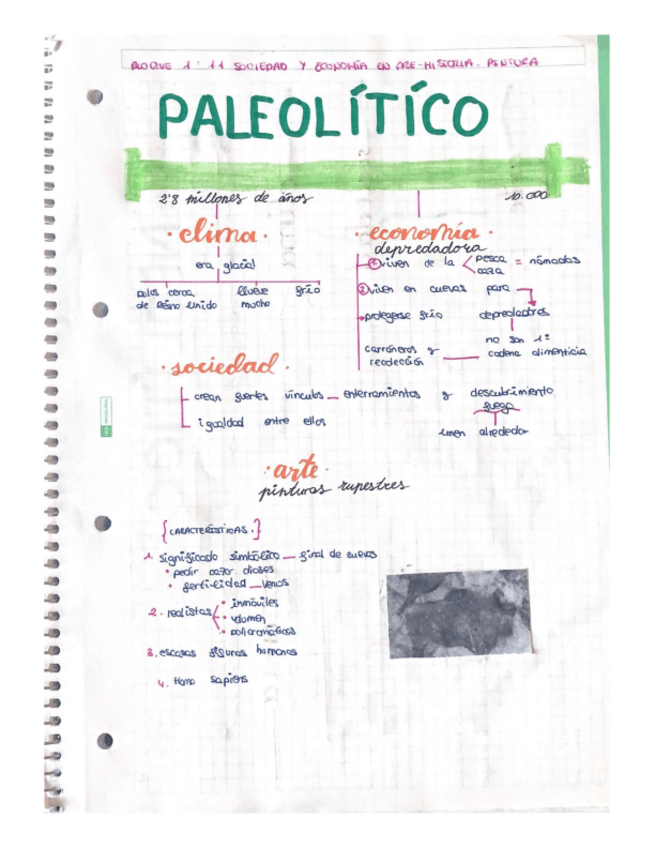 BLOQUE 1 1.1 SOCIEDAD Y ECONOMÍA EN PRE-HISTORIA. PINTURA
PALEOLÍTÍCO
2'8 millones de años
10.000
· clima ·
era glacial
polos cerca de Reino Unido
llueve mucho
frío
· economía ·
depredadora
1 viven de la pesca caza = nómadas
2 viven en cuevas para
protegerse frío
depredadores
no son 1º cadena alimenticia
carroñeros y recolección
· sociedad ·
crean fuertes vínculos enterramientos y descubrimiento fuego
unen alrededor
igualdad entre ellos
· arte ·
pinturas rupestres
{CARACTERÍSTICAS.}
1. significado simbólico final de cuevas
• pedir cazar dioses
• fertilidad venus
2. realistas
• inmóviles
• volumen
• policromáticas
3. escasas figuras humanas
4. Homo sapiens